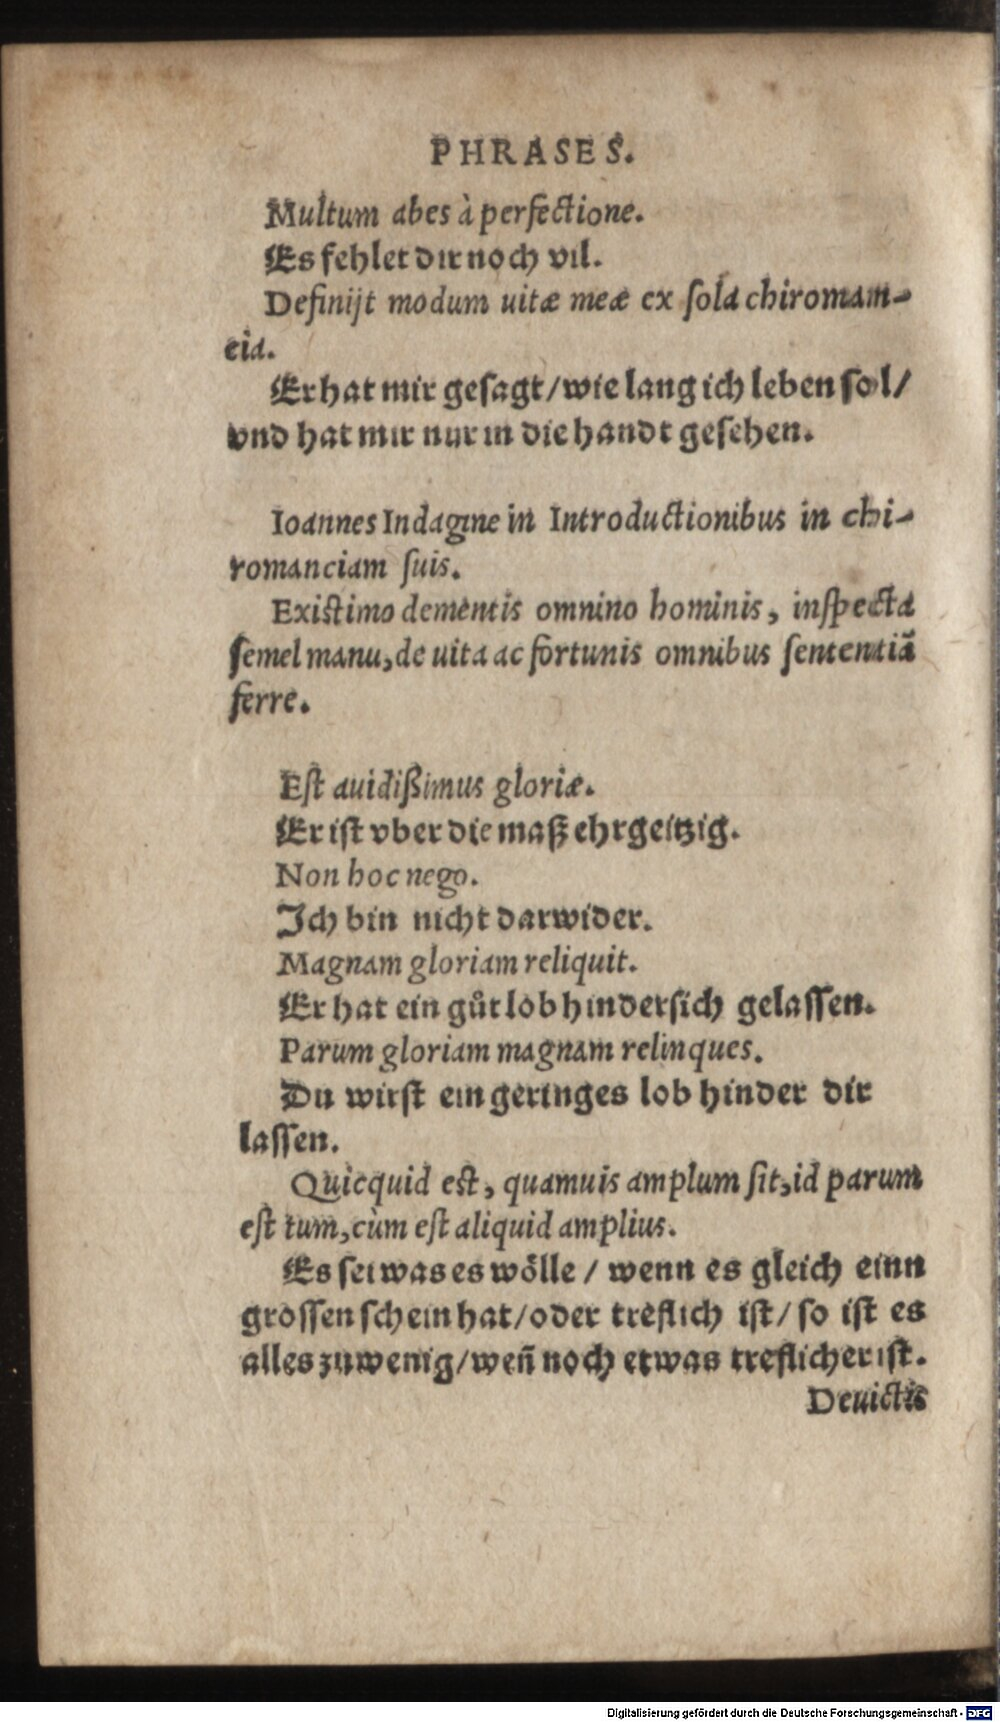 PHRASES.
Multum abes à perfectione.
Es fehlet dir noch vil.
Definijt modum uitæ meæ ex sola chiromam-
cia.
Er hat mir gesagt/wie lang ich leben sol/
vnd hat mir nur in die handt gesehen.
Ioannes Indagine in Introductionibus in chi-
romanciam suis.
Existimo dementis omnino hominis, inspecta
semel manu, de uita ac fortunis omnibus sententiã
ferre.
Est auidißimus gloriæ.
Er ist vber die maß ehrgeitzig.
Non hoc nego.
Ich bin nicht darwider.
Magnam gloriam reliquit.
Er hat ein gůt lob hindersich gelassen.
Parum gloriam magnam relinques.
Du wirst ein geringes lob hinder dir
lassen.
Quicquid est, quamuis amplum sit, id parum
est tum, cùm est aliquid amplius.
Es sei was es wölle / wenn es gleich einn
grossen schein hat/oder treflich ist/ so ist es
alles zuwenig/weñ noch etwas treflicher ist.
Deuictis
Digitalisierung gefördert durch die Deutsche Forschungsgemeinschaft - DFG